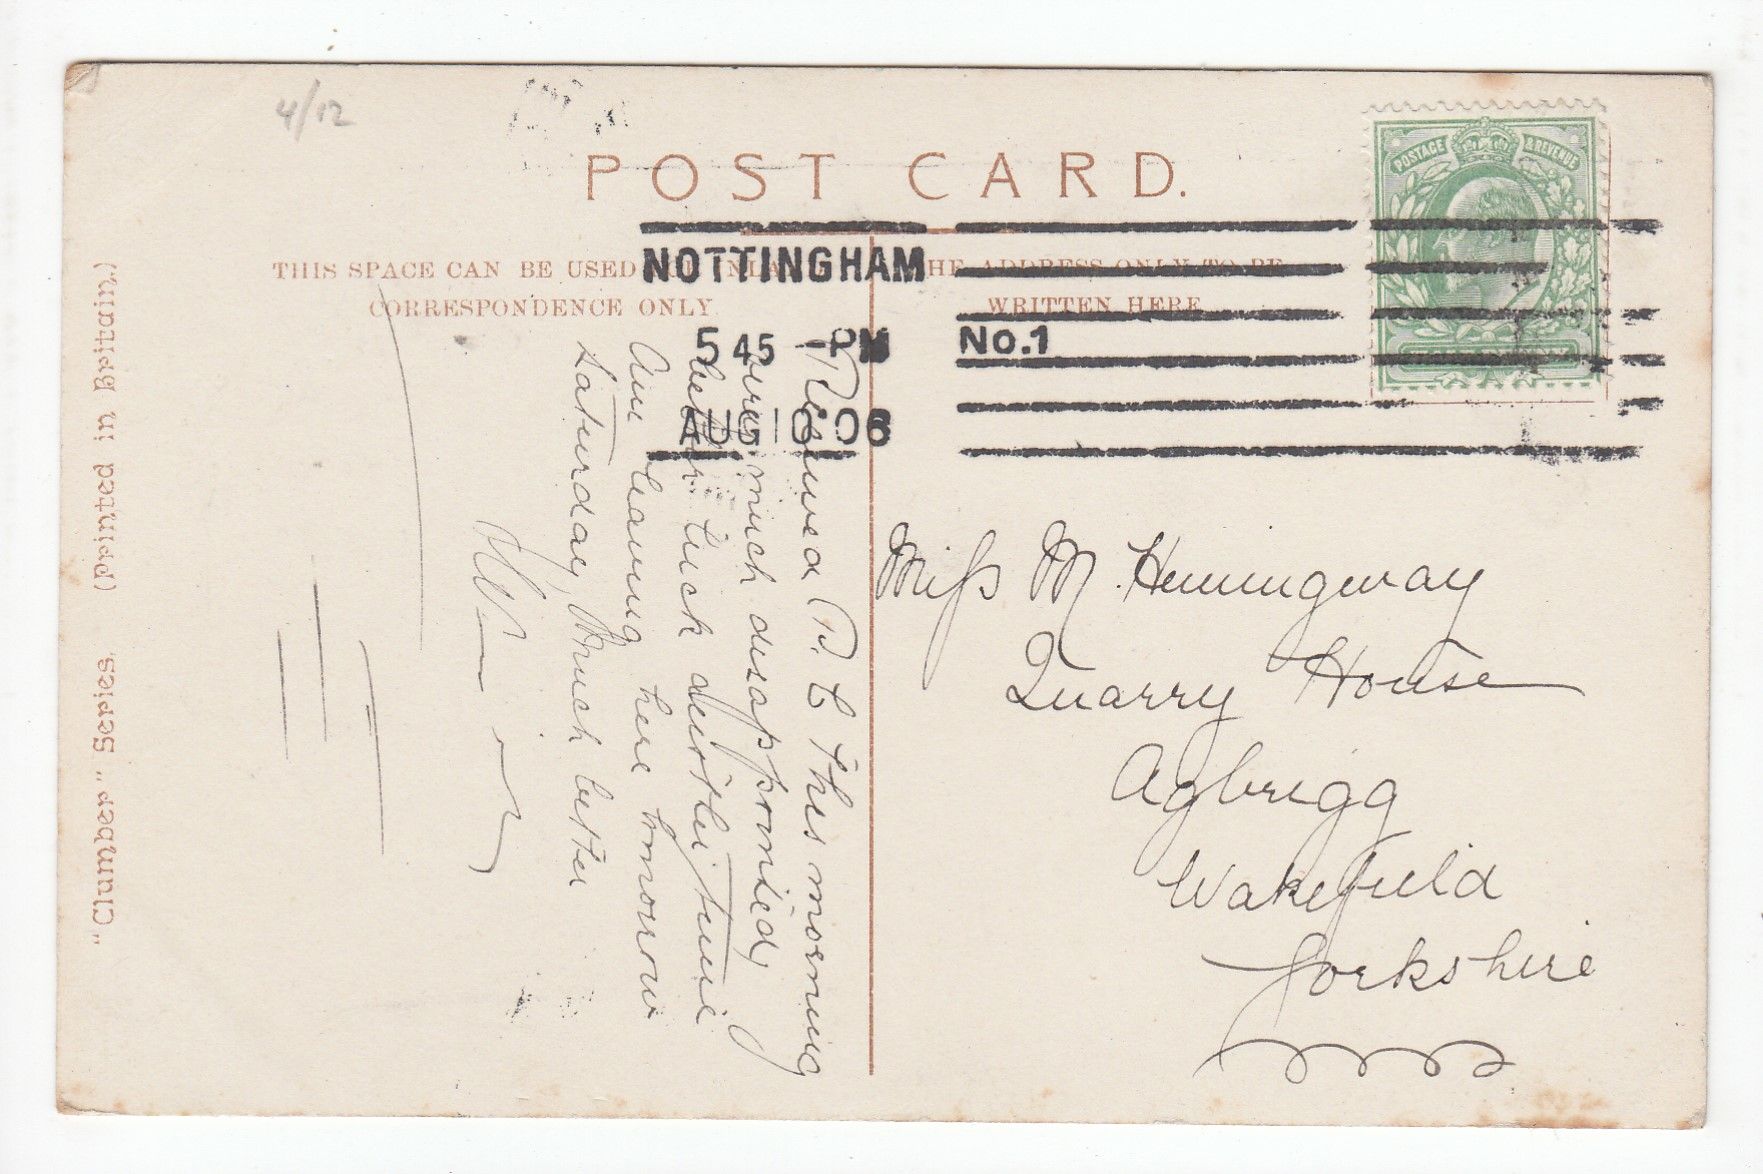 4/12
POST CARD.
THIS SPACE CAN BE USED INLA
CORRESPONDENCE ONLY.
HE ADDRESS ONLY TO BE
WRITTEN HERE
NOTTINGHAM
5 45 - PM
AUG 10 06
No.1
POSTAGE & REVENUE
Received P. C this morning
very much disappointed,
better luck next time
Am leaving here tomorrow
Saturday, Much better
Miss M. Hemingway
Quarry House
Agbrigg
Wakefield
Yorkshire
"Clumber" Series. (Printed in Britain.)